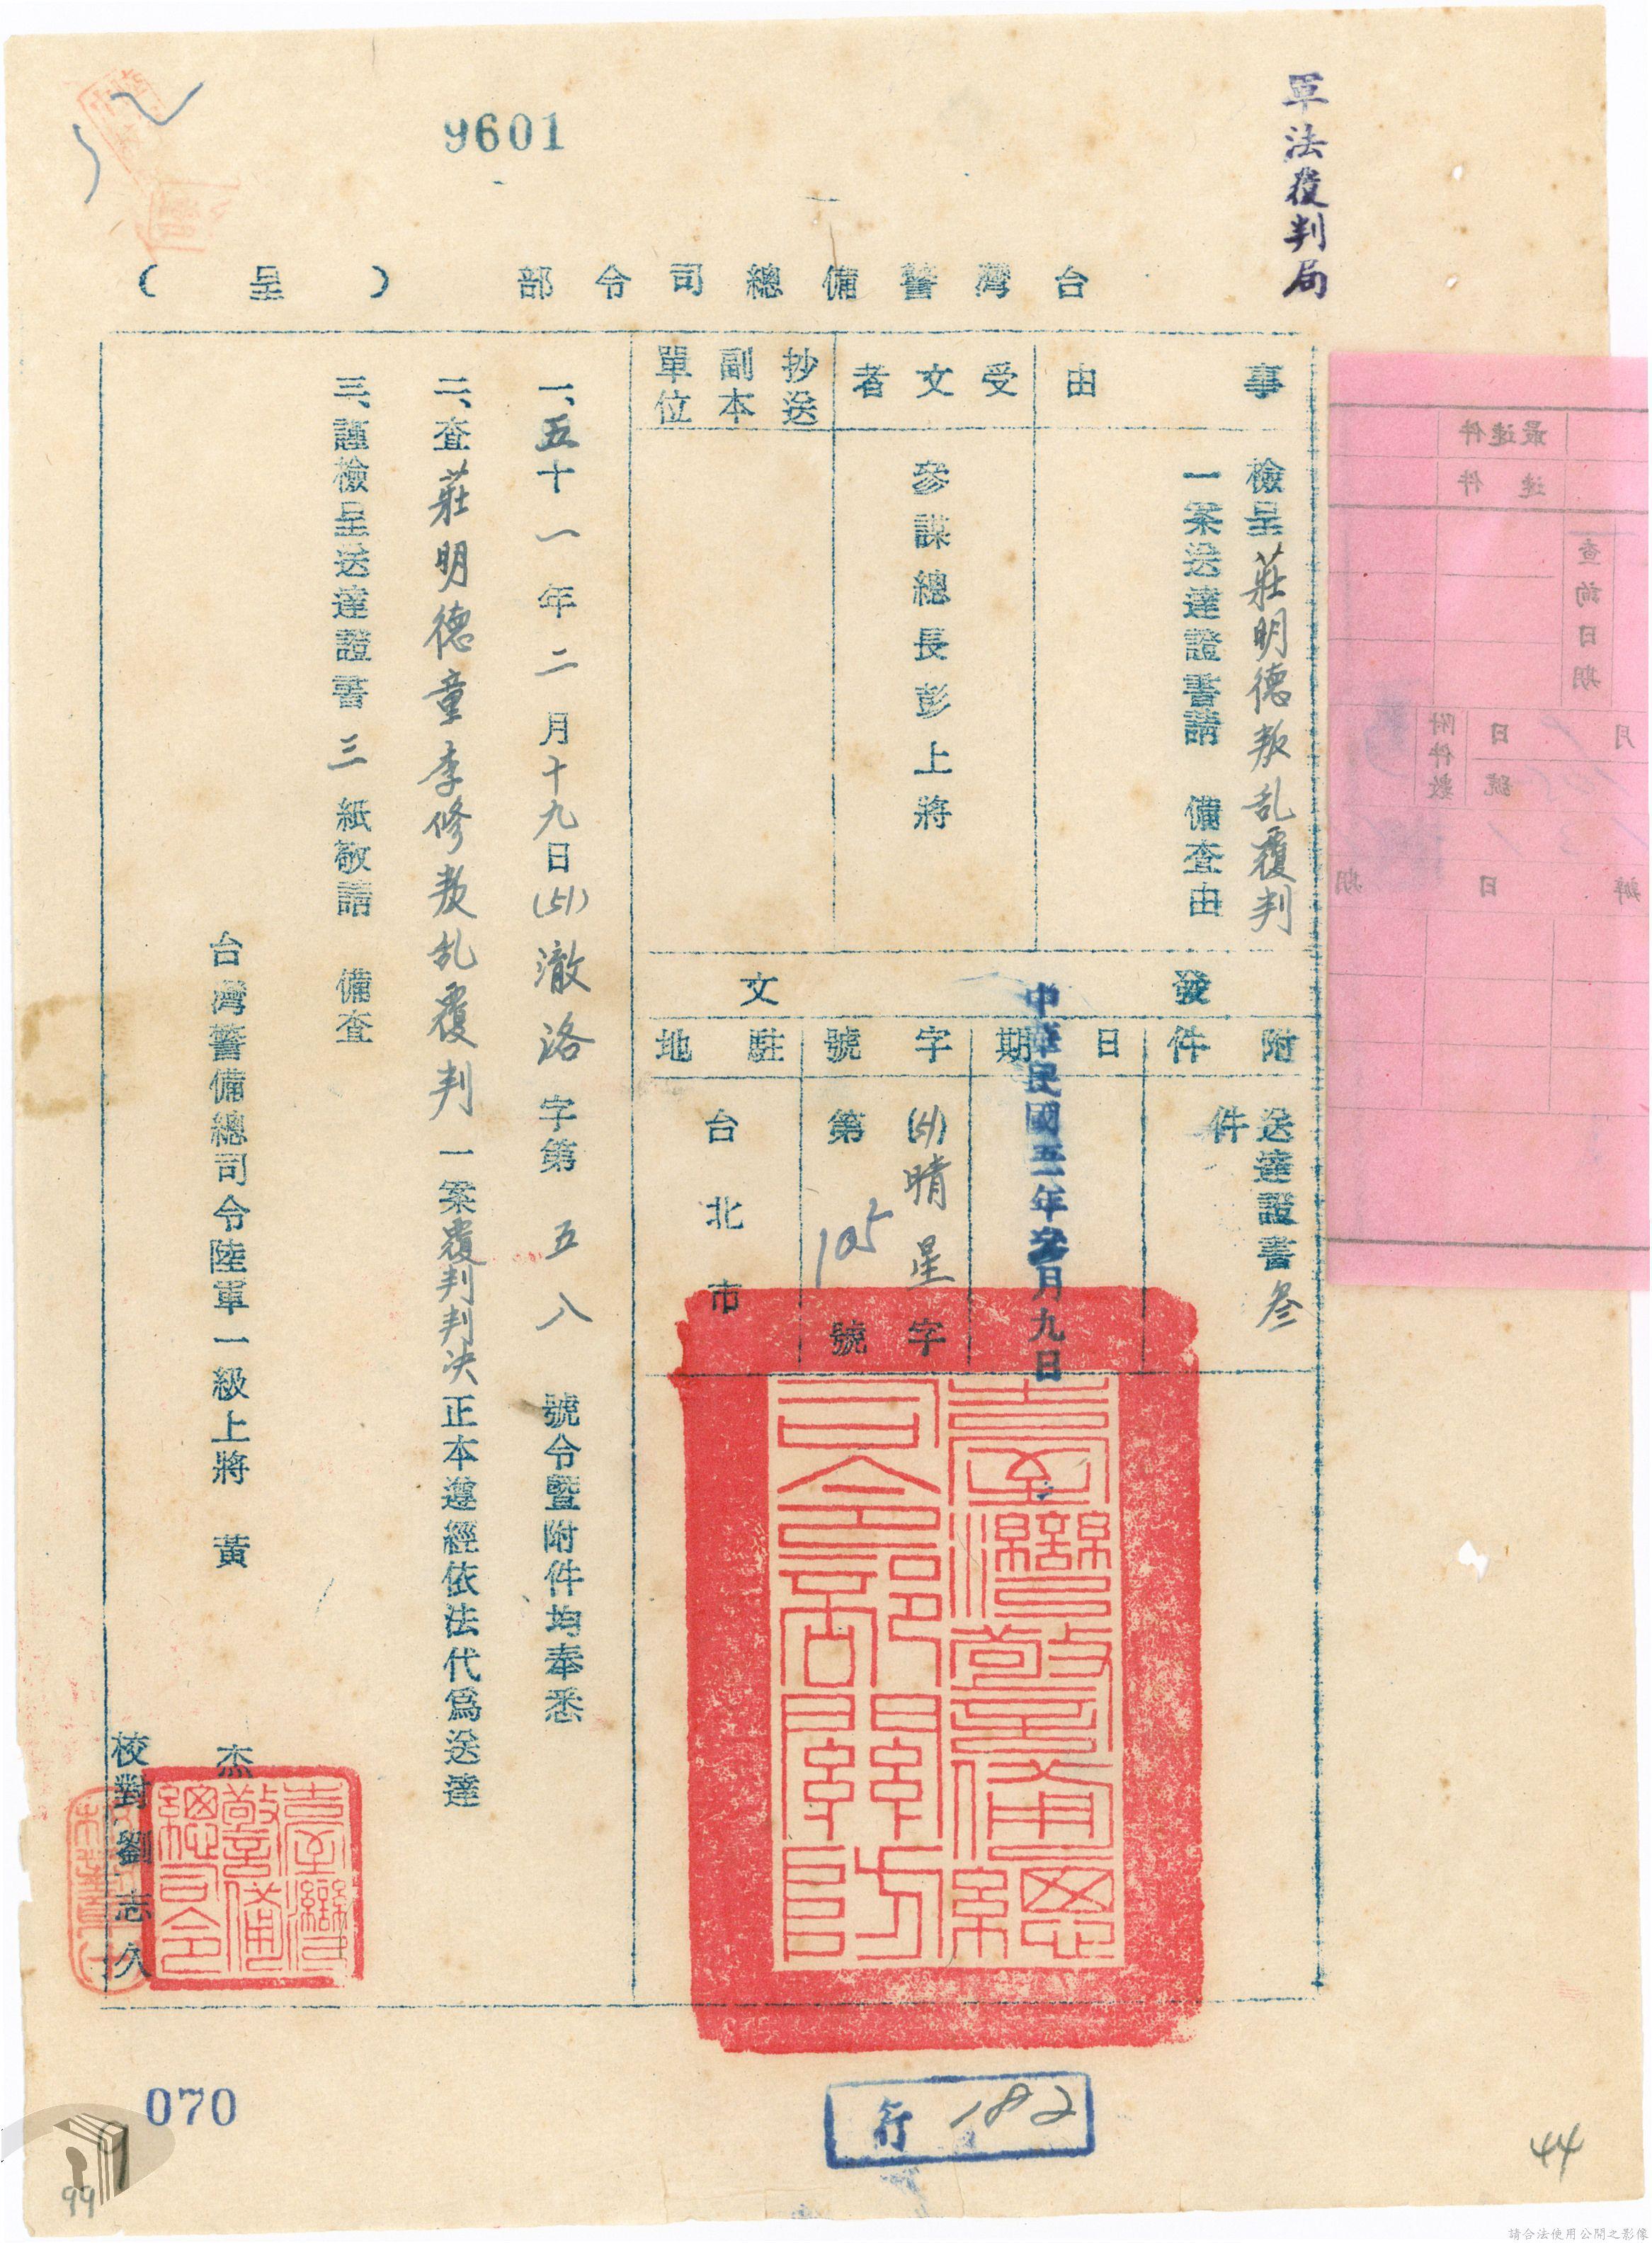 軍法覆判局
9601
台灣警備總司令部（呈）
事由
檢呈莊明德叛乱覆判
一案送達證書請　備查由
受文者
參謀總長彭上將
抄送
副本
單位
發文
附件
送達證書叁
件
日期
中華民國五一年叁月九日
字號
(51)晴星字
第105號
駐地
台北市
一、五十一年二月十九日(51)澈洛字第五八號令暨附件均奉悉
二、查莊明德童李修叛乱覆判一案覆判判決正本遵經依法代為送達
三、謹檢呈送達證書三紙敬請　備查
台灣警備總司令陸軍一級上將　黃杰
校對劉志久
臺灣警備總
司令部關防
臺灣
警備
總司令
最速件
速件
查詢日期
月
日
號
附件數
辦
日
期
行182
070
44
99
請合法使用公開之影像